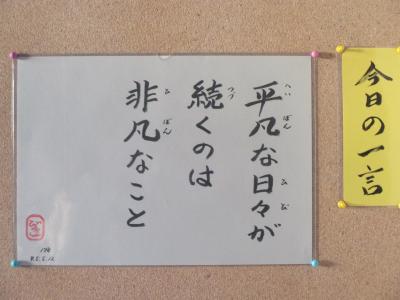 今日の一言
平凡な日々が
続くのは
非凡なこと